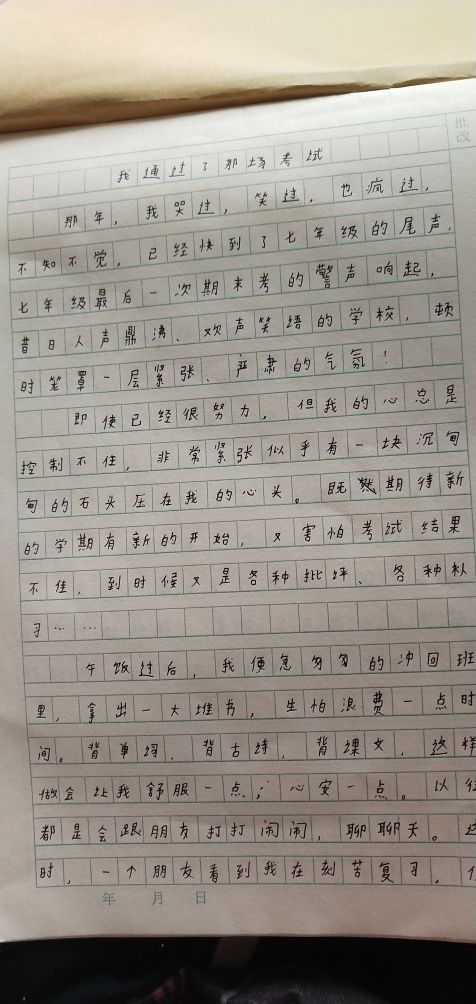 批改
我通过了那场考试
那年，我哭过，笑过，也疯过，
不知不觉，已经快到了七年级的尾声，
七年级最后一次期末考的警声响起，
昔日人声鼎沸、欢声笑语的学校，顿
时笼罩一层紧张、严肃的气氛！
即使已经很努力，但我的心总是
控制不住，非常紧张似乎有一块沉甸
甸的石头压在我的心头。既然期待新
的学期有新的开始，又害怕考试结果
不佳，到时候又是各种批评、各种补
习……
午饭过后，我便急匆匆的冲回班
里，拿出一大堆书，生怕浪费一点时
间。背单词，背古诗，背课文，这样
做会让我舒服一点；心安一点。以往
都是会跟朋友打打闹闹，聊聊天。这
时，一个朋友看到我在刻苦复习，
年 月 日